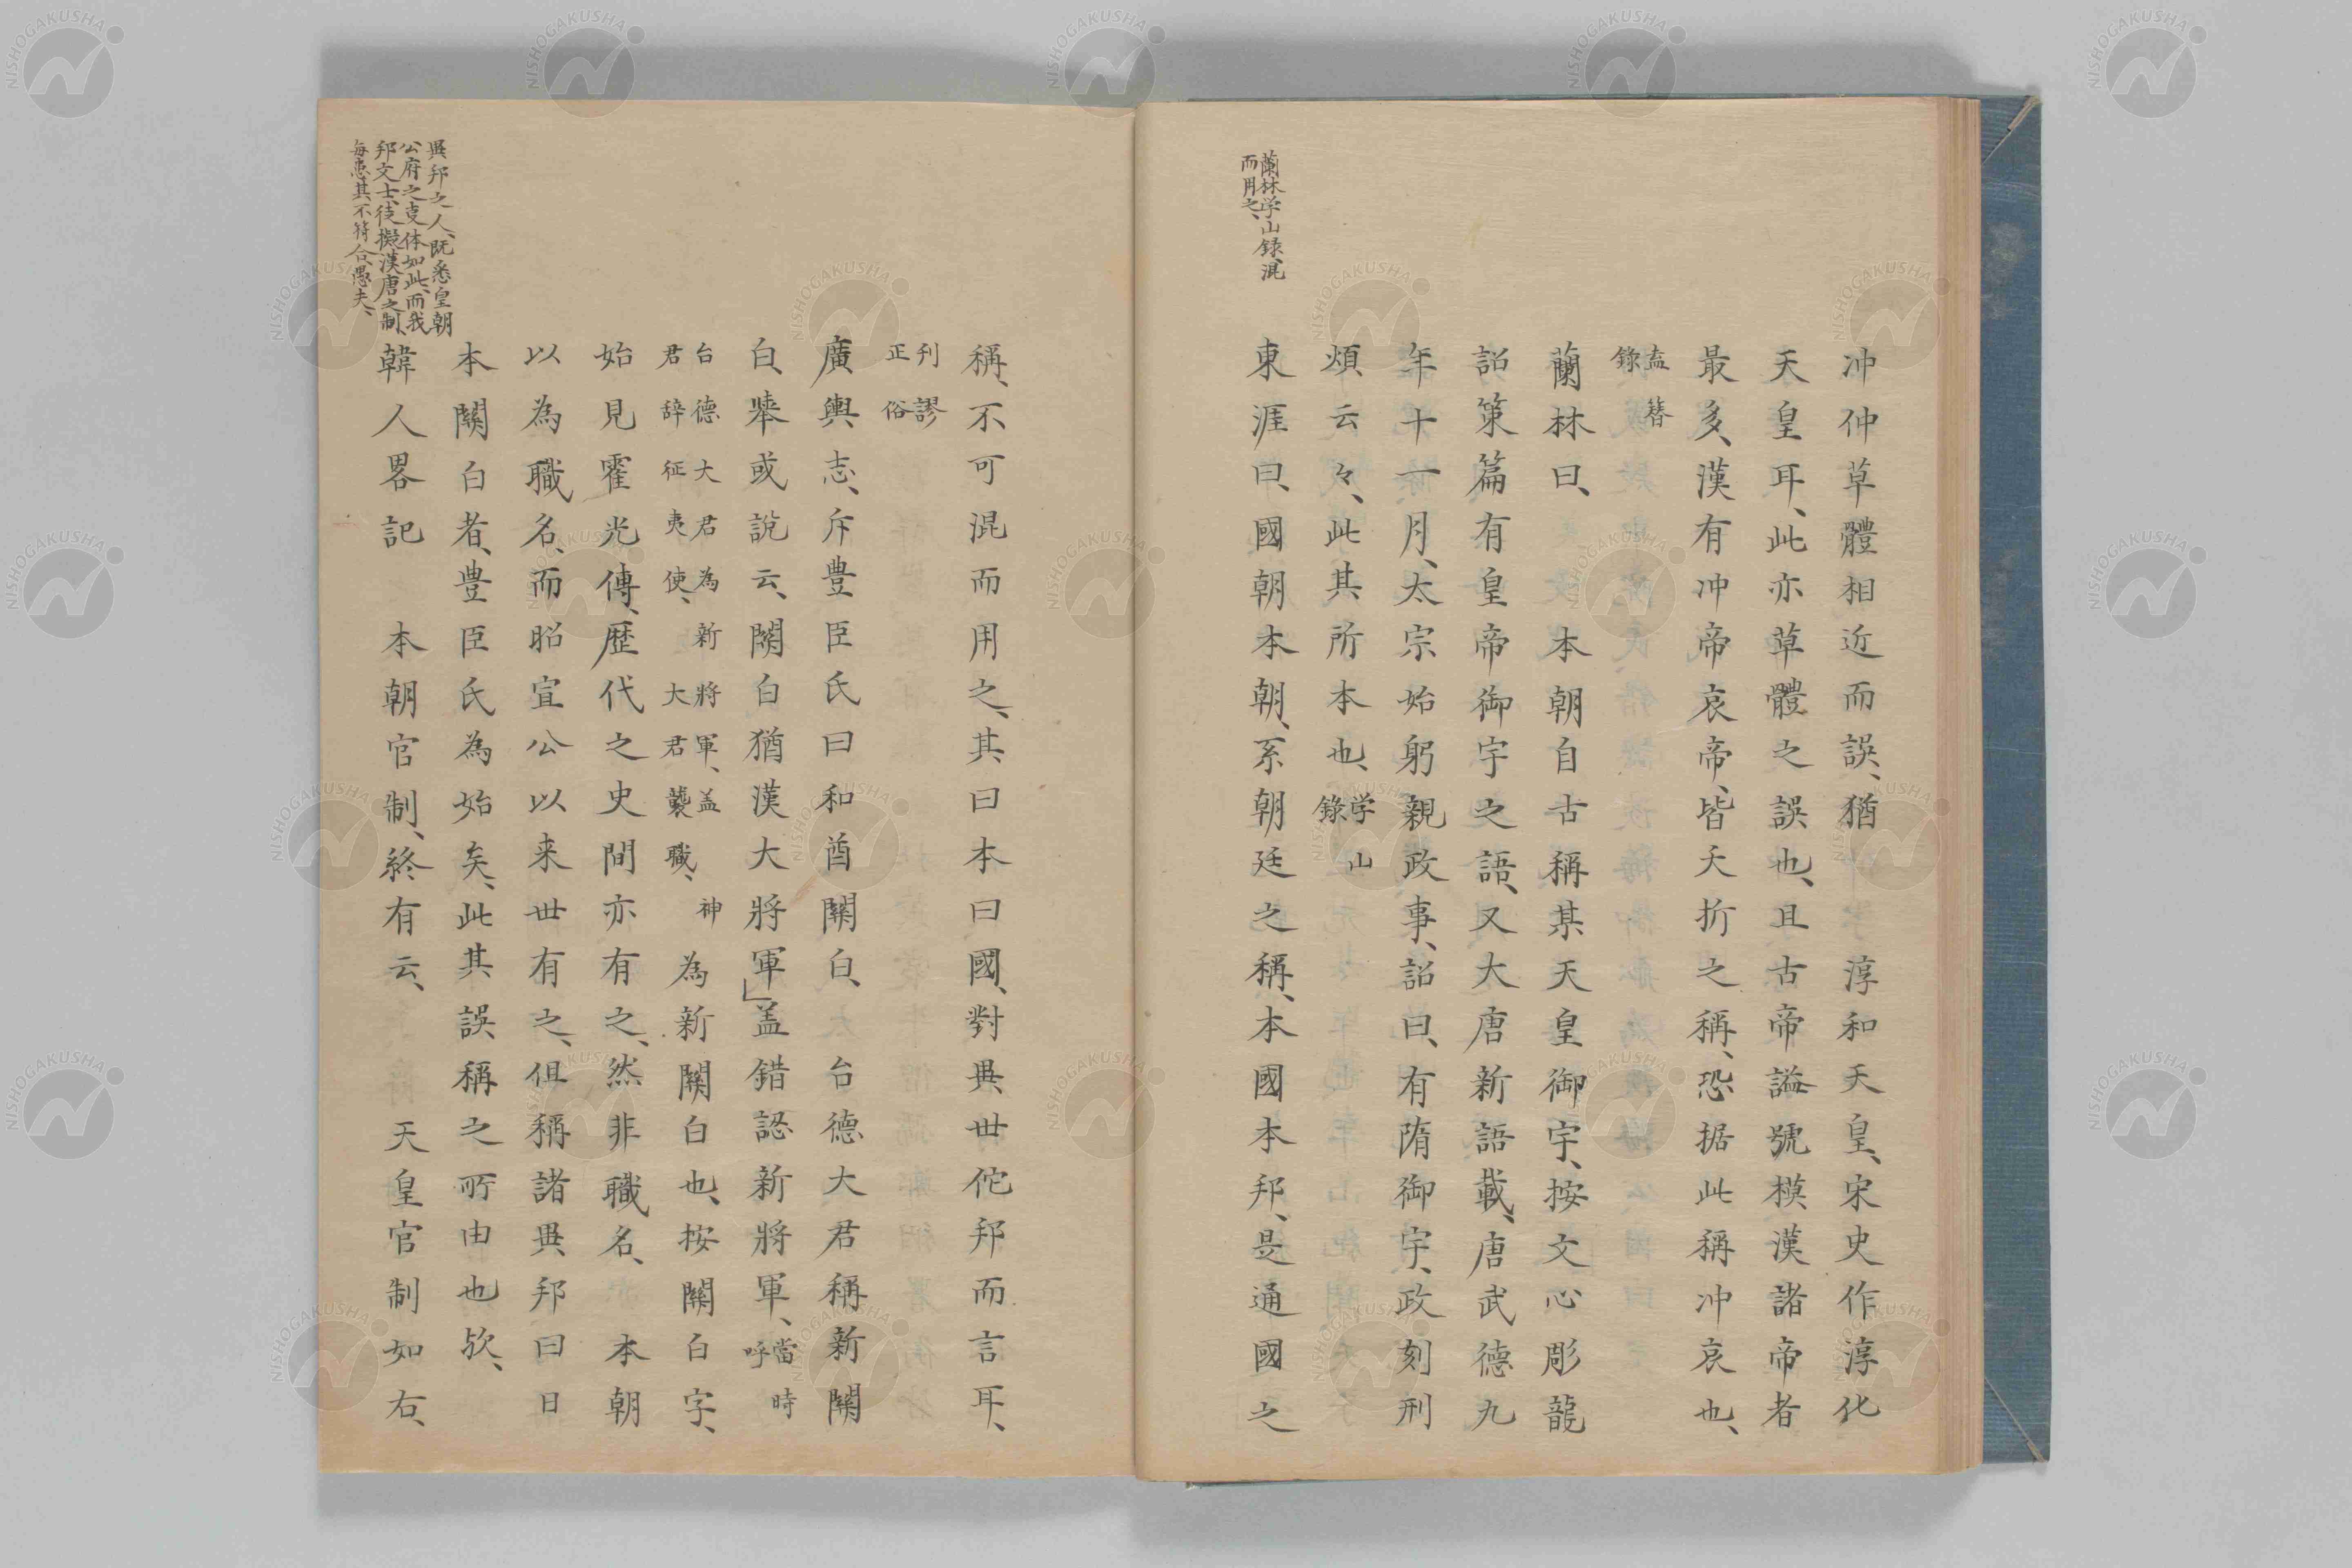 冲仲草體相近而誤、猶　淳和天皇、宋史作淳化
天皇耳、此亦草體之誤也、且古帝謚號模漢諸帝者
最多、漢有冲帝哀帝、皆夭折之稱、恐据此稱冲哀也、
盍簪
錄
蘭林曰、　本朝自古稱某天皇御宇、按文心彫龍
詔策篇有皇帝御宇之語、又大唐新語載、唐武德九
年十一月、太宗始躬親政事、詔曰、有隋御宇、政刻刑
煩云々、此其所本也、学山錄
東涯曰、國朝本朝、系朝廷之稱、本國本邦、是通國之
蘭林学山録、混
而用之、
稱、不可混而用之、其曰本曰國、對異世佗邦而言耳、
刊謬
正俗
廣輿志、斥豊臣氏曰和酋關白、　台德大君稱新關
白、擧或說云、關白猶漢大將軍」盖錯認新將軍、當時呼
台德大君為新將軍、盖　神
君辞征夷使、　大君襲職、
為新關白也、按關白字、
始見霍光傳、歷代之史間亦有之、然非職名、　本朝
以為職名、而昭宣公以来世有之、但稱諸異邦曰日
本關白者、豊臣氏為始矣、此其誤稱之所由也欤、
韓人畧記　本朝官制、終有云、　天皇官制如右、
異邦之人、既悉皇朝
公府之事体如此、而我
邦文士、徒擬漢唐之制、
毎患其不符合愚夫、
NISHOGAKUSHA